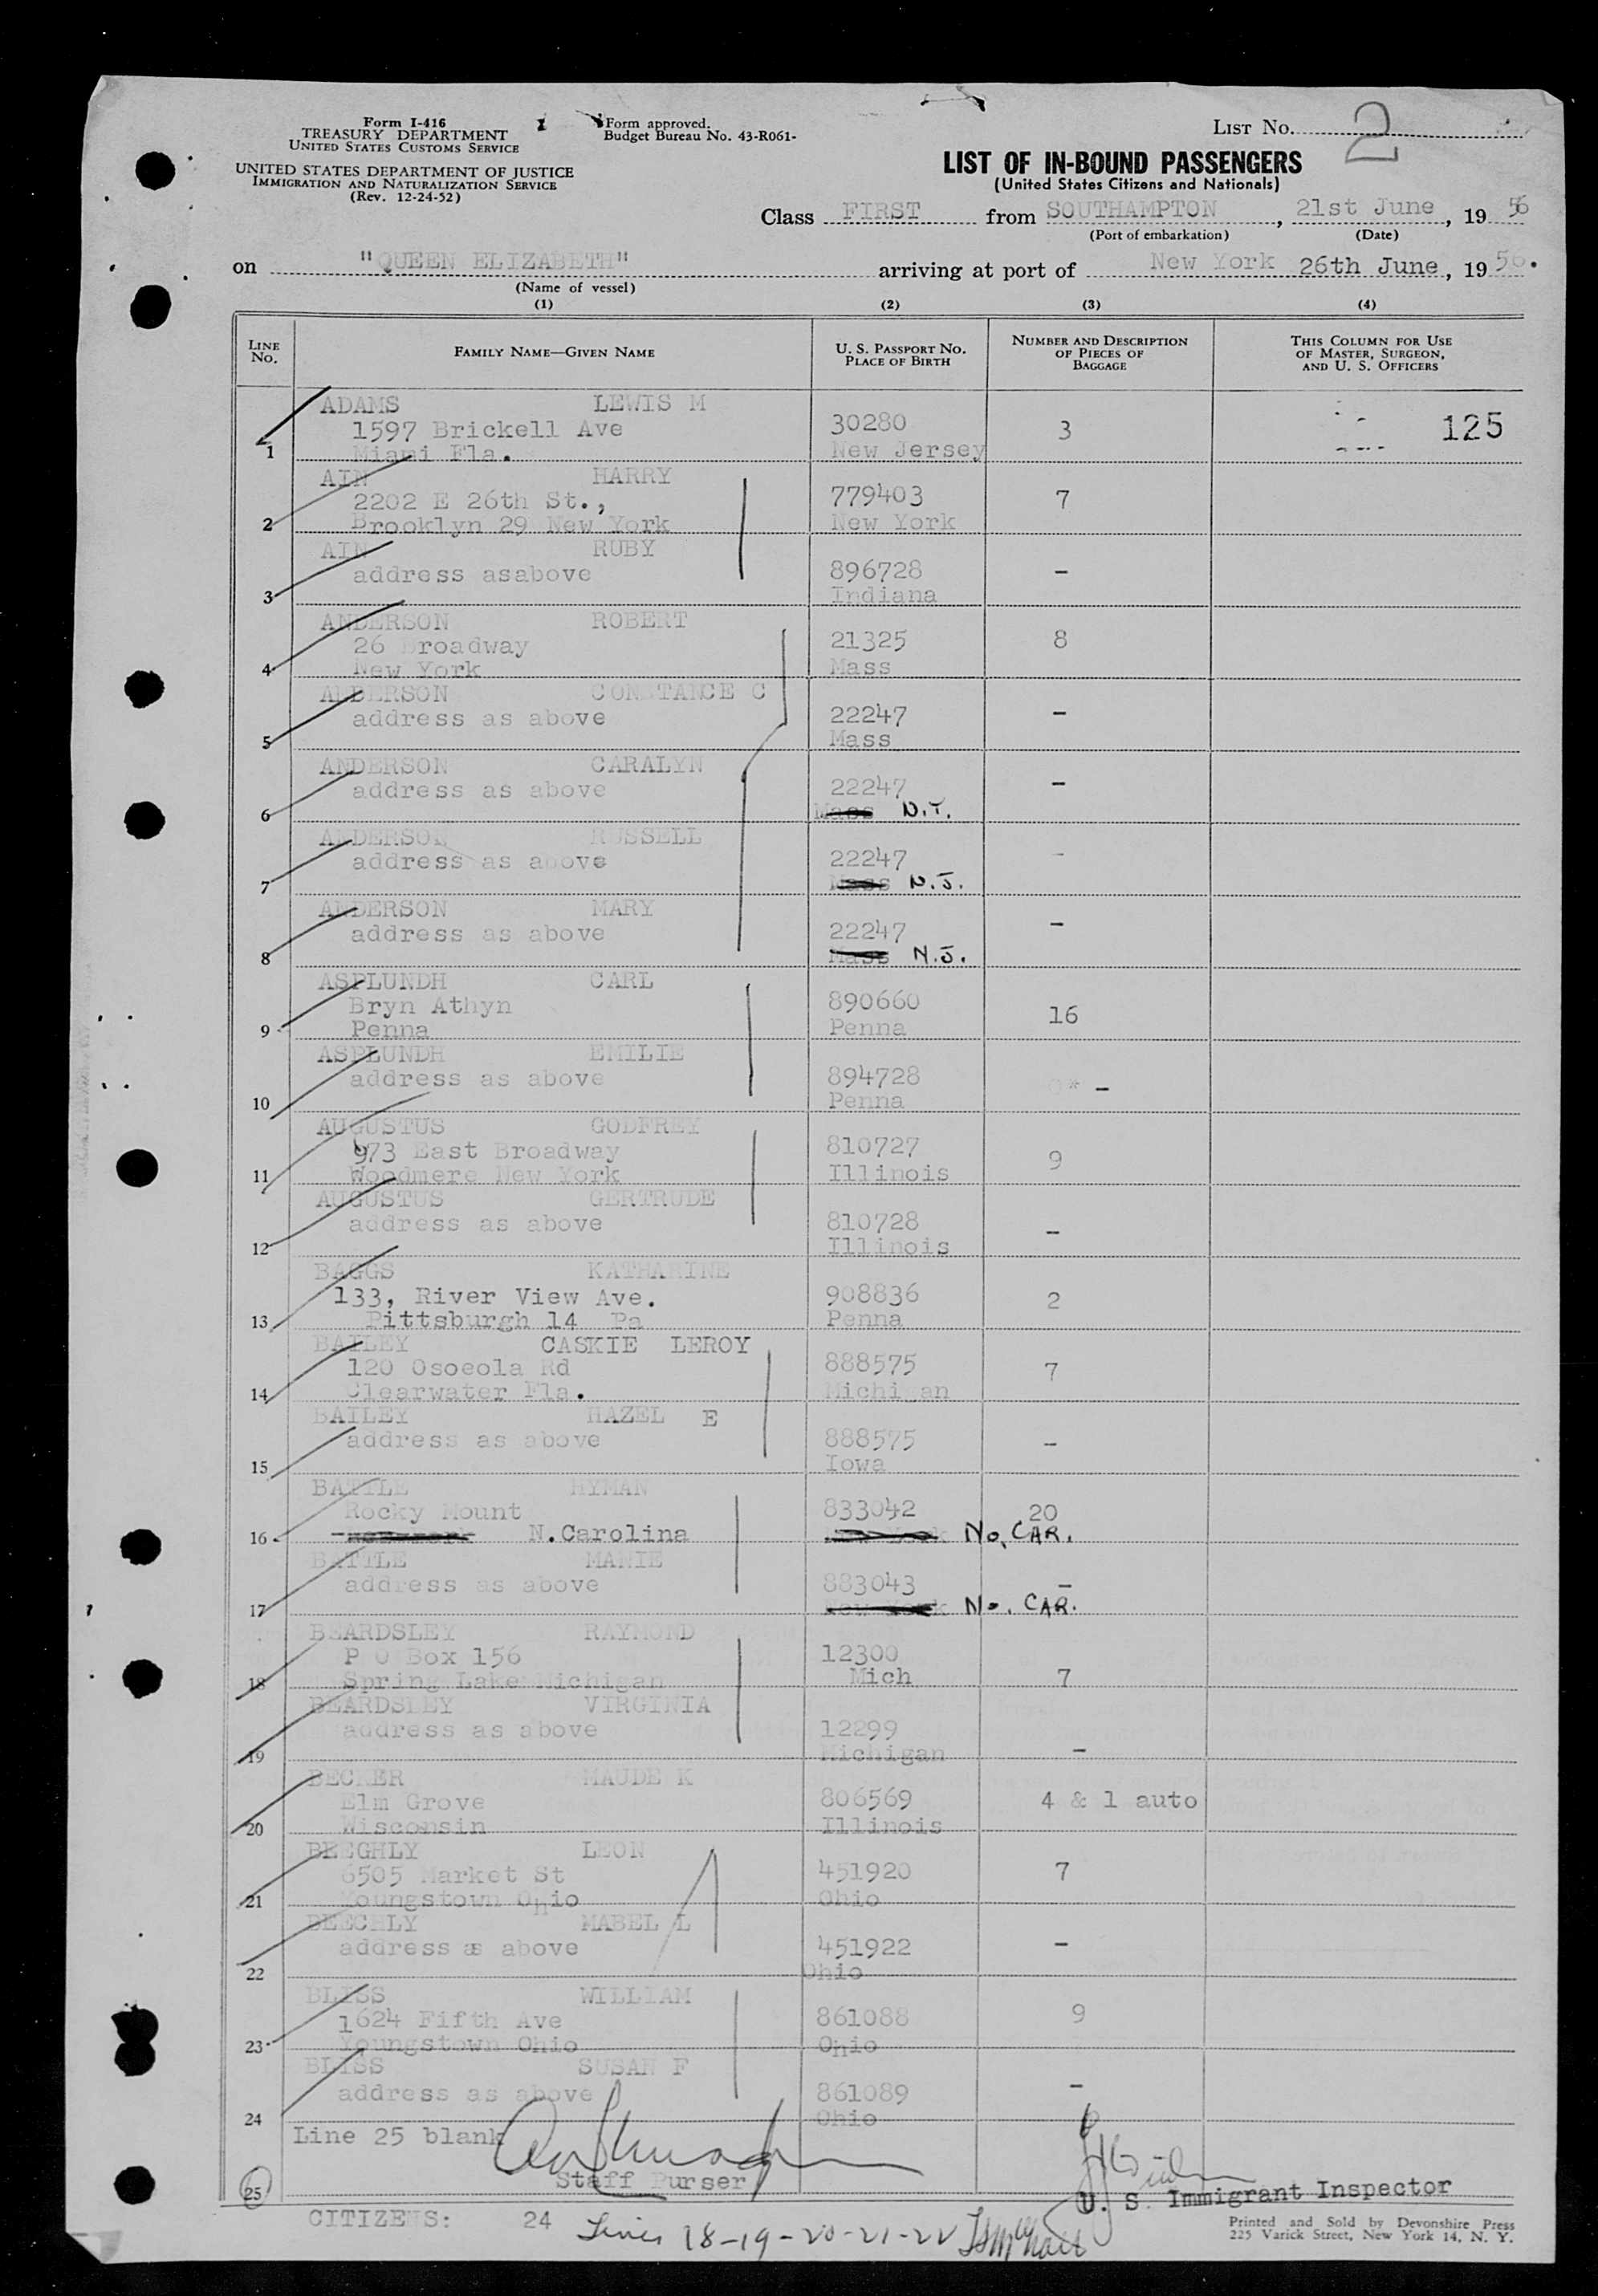 Form I-416
TREASURY DEPARTMENT
UNITED STATES CUSTOMS SERVICE
UNITED STATES DEPARTMENT OF JUSTICE
IMMIGRATION AND NATURALIZATION SERVICE
(Rev. 12-24-52)
Form approved.
Budget Bureau No. 43-R061-
LIST No. 2
LIST OF IN-BOUND PASSENGERS
(United States Citizens and Nationals)
Class FIRST from SOUTHAMPTON, 21st June, 19 56
(Port of embarkation) (Date)
on "QUEEN ELIZABETH" arriving at port of New York 26th June, 19 56.
(Name of vessel)
(1) (2) (3) (4)
LINE No. FAMILY NAME—GIVEN NAME U. S. PASSPORT No. PLACE OF BIRTH NUMBER AND DESCRIPTION OF PIECES OF BAGGAGE THIS COLUMN FOR USE OF MASTER, SURGEON, AND U. S. OFFICERS
ADAMS LEWIS M
1597 Brickell Ave 30280 3 125
1 Miami Fla. New Jersey
AIN HARRY
2202 E 26th St., 779403 7
2 Brooklyn 29 New York New York
AIN RUBY
address asabove 896728 -
3 Indiana
ANDERSON ROBERT
26 Broadway 21325 8
4 New York Mass
ANDERSON CONSTANCE C
address as above 22247 -
5 Mass
ANDERSON CARALYN
address as above 22247 -
6 Mass N.J.
ANDERSON RUSSELL
address as above 22247 -
7 Mass N.J.
ANDERSON MARY
address as above 22247 -
8 Mass N.J.
ASPLUNDH CARL
Bryn Athyn 890660 16
9 Penna Penna
ASPLUNDH EMILIE
address as above 894728 -
10 Penna
AUGUSTUS GODFREY
973 East Broadway 810727 9
11 Woodmere New York Illinois
AUGUSTUS GERTRUDE
address as above 810728 -
12 Illinois
BAGGS KATHARINE
133, River View Ave. 908836 2
13 Pittsburgh 14 Pa Penna
BAILEY CASKIE LEROY
120 Osoeola Rd 888575 7
14 Clearwater Fla. Michigan
BAILEY HAZEL E
address as above 888575 -
15 Iowa
BATTLE HYMAN
Rocky Mount 833042 20
16 N.Carolina No. CAR.
BATTLE MAMIE
address as above 883043 -
17 New York No. CAR.
BEARDSLEY RAYMOND
P O Box 156 12300
18 Spring Lake Michigan Mich 7
BEARDSLEY VIRGINIA
address as above 12299
19 Michigan -
BECKER MAUDE K
Elm Grove 806569 4 & 1 auto
20 Wisconsin Illinois
BEEGHLY LEON
6505 Market St 451920 7
21 Youngstown Ohio Ohio
BEEGHLY MABEL L
address as above 451922 -
22 Ohio
BLISS WILLIAM
1624 Fifth Ave 861088 9
23 Youngstown Ohio Ohio
BLISS SUSAN F
address as above 861089 -
24 Ohio
Line 25 blank
Staff Purser
25 U. S. Immigrant Inspector
CITIZENS: 24 Lines 18-19-20-21-22
Printed and Sold by Devonshire Press
225 Varick Street, New York 14, N. Y.